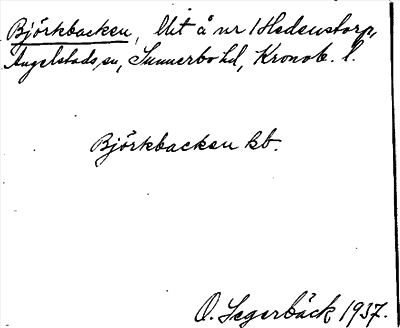 Björkbacken, Utt å nr 1 Hedenstorp,
Angelstads sn, Sunnerbo hd, Kronob. l.
Björkbacken bb.
O. Segerbäck 1937.